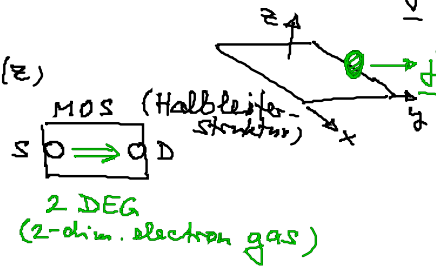 z
(z)
MOS (Halbleiter-
struktur)
x
y
S D
2 DEG
(2-dim. electron gas)